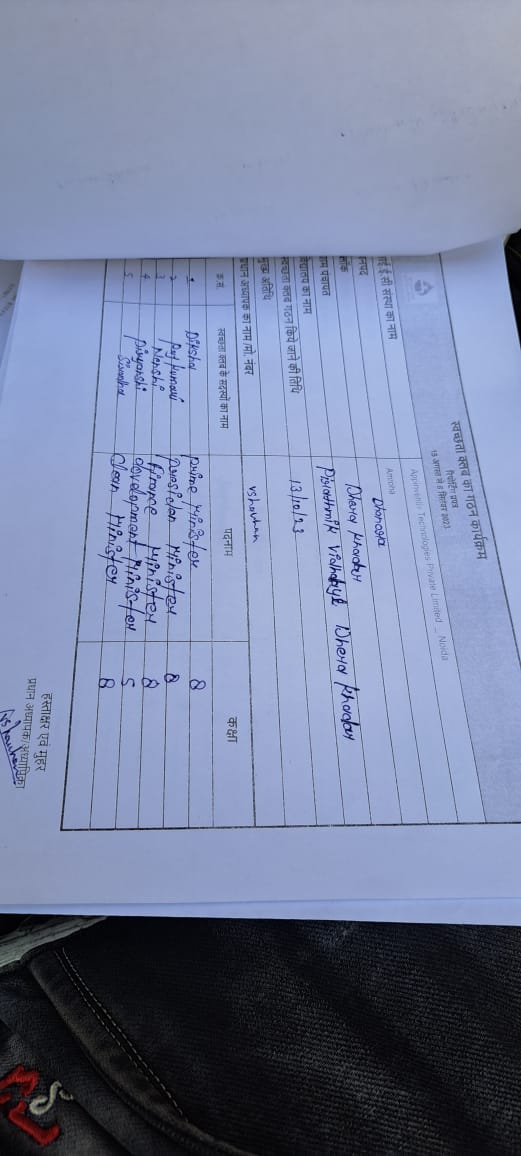 स्वच्छता क्लब का गठन कार्यक्रम
रिपोर्टिंग प्रपत्र
15 अगस्त से 8 सितंबर 2023
ई सी संस्था का नाम Appinventiv Technologies Private Limited _ Noida
नपद Amroha
लॉक Dhanaura
म पंचायत Dhera khadar
द्यालय का नाम Dhera khadar
स्वच्छता क्लब गठन किये जाने की तिथि 13/10/23
मुख्य अतिथि
प्रधान अध्यापक का नाम /मो. नंबर vshauhan
क्र.स स्वच्छता क्लब के सदस्यों का नाम पदनाम कक्षा
1 Diksha prime Minister 8
2 Raj kumari Minister 8
3 Finance Minister 8
4 Divyanshi development Minister 5
5 Clean Minister 8
हस्ताक्षर एवं मुहर
प्रधान अध्यापक/अध्यापिका